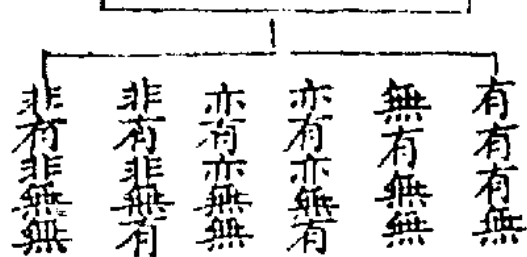 有有有無
無有無無
亦有亦無有
亦有亦無無
非有非無有
非有非無無